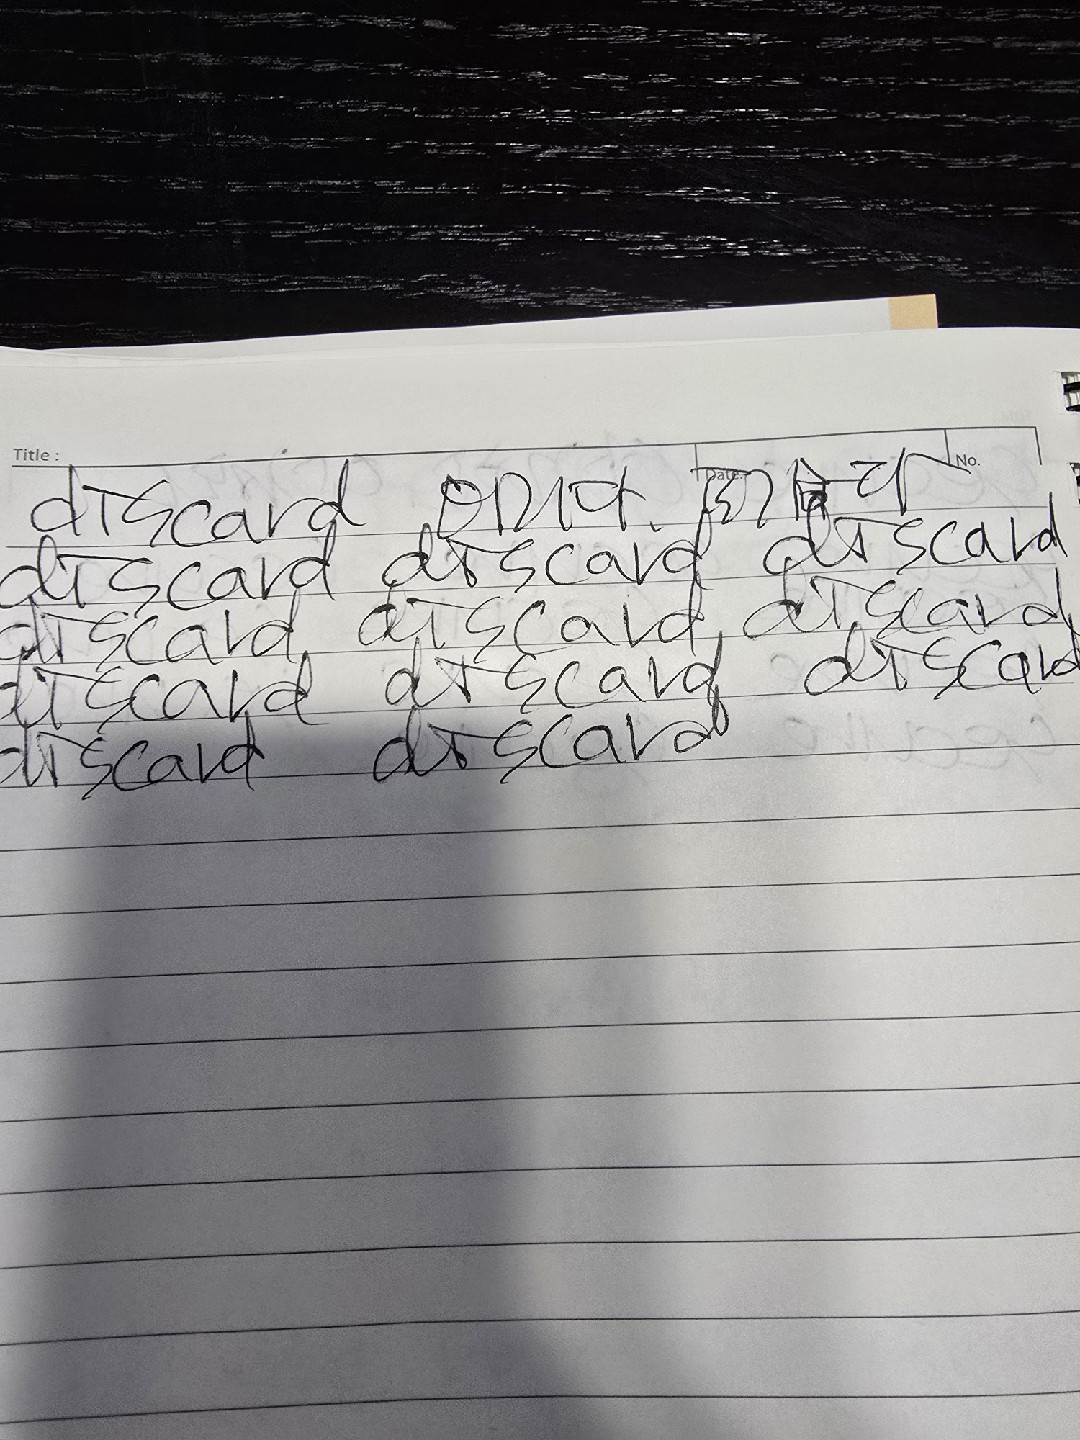 Title : Date. No.
discard
discard discard discard
discard, discard, discard,
discard discard discard
discard discard